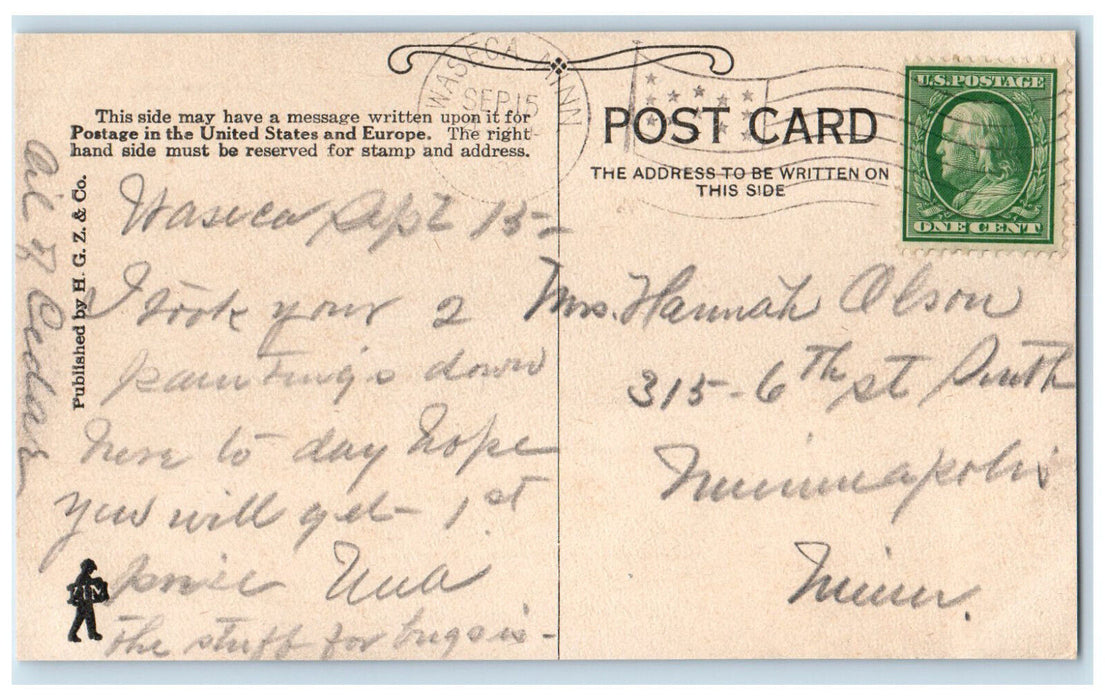 WASECA MINN
SEP 15
This side may have a message written upon it for
Postage in the United States and Europe. The right-
hand side must be reserved for stamp and address.
Published by H. G. Z. & Co.
Waseca Sept 15-
I took your 2
paintings down
here to day hope
you will get 1st
price
The stuff for bugs is-
Oil of Cedar
POST CARD
THE ADDRESS TO BE WRITTEN ON
THIS SIDE
U.S. POSTAGE
ONE CENT
Mrs. Hannah Olson
315-6th st South
Minneapolis
Minn.